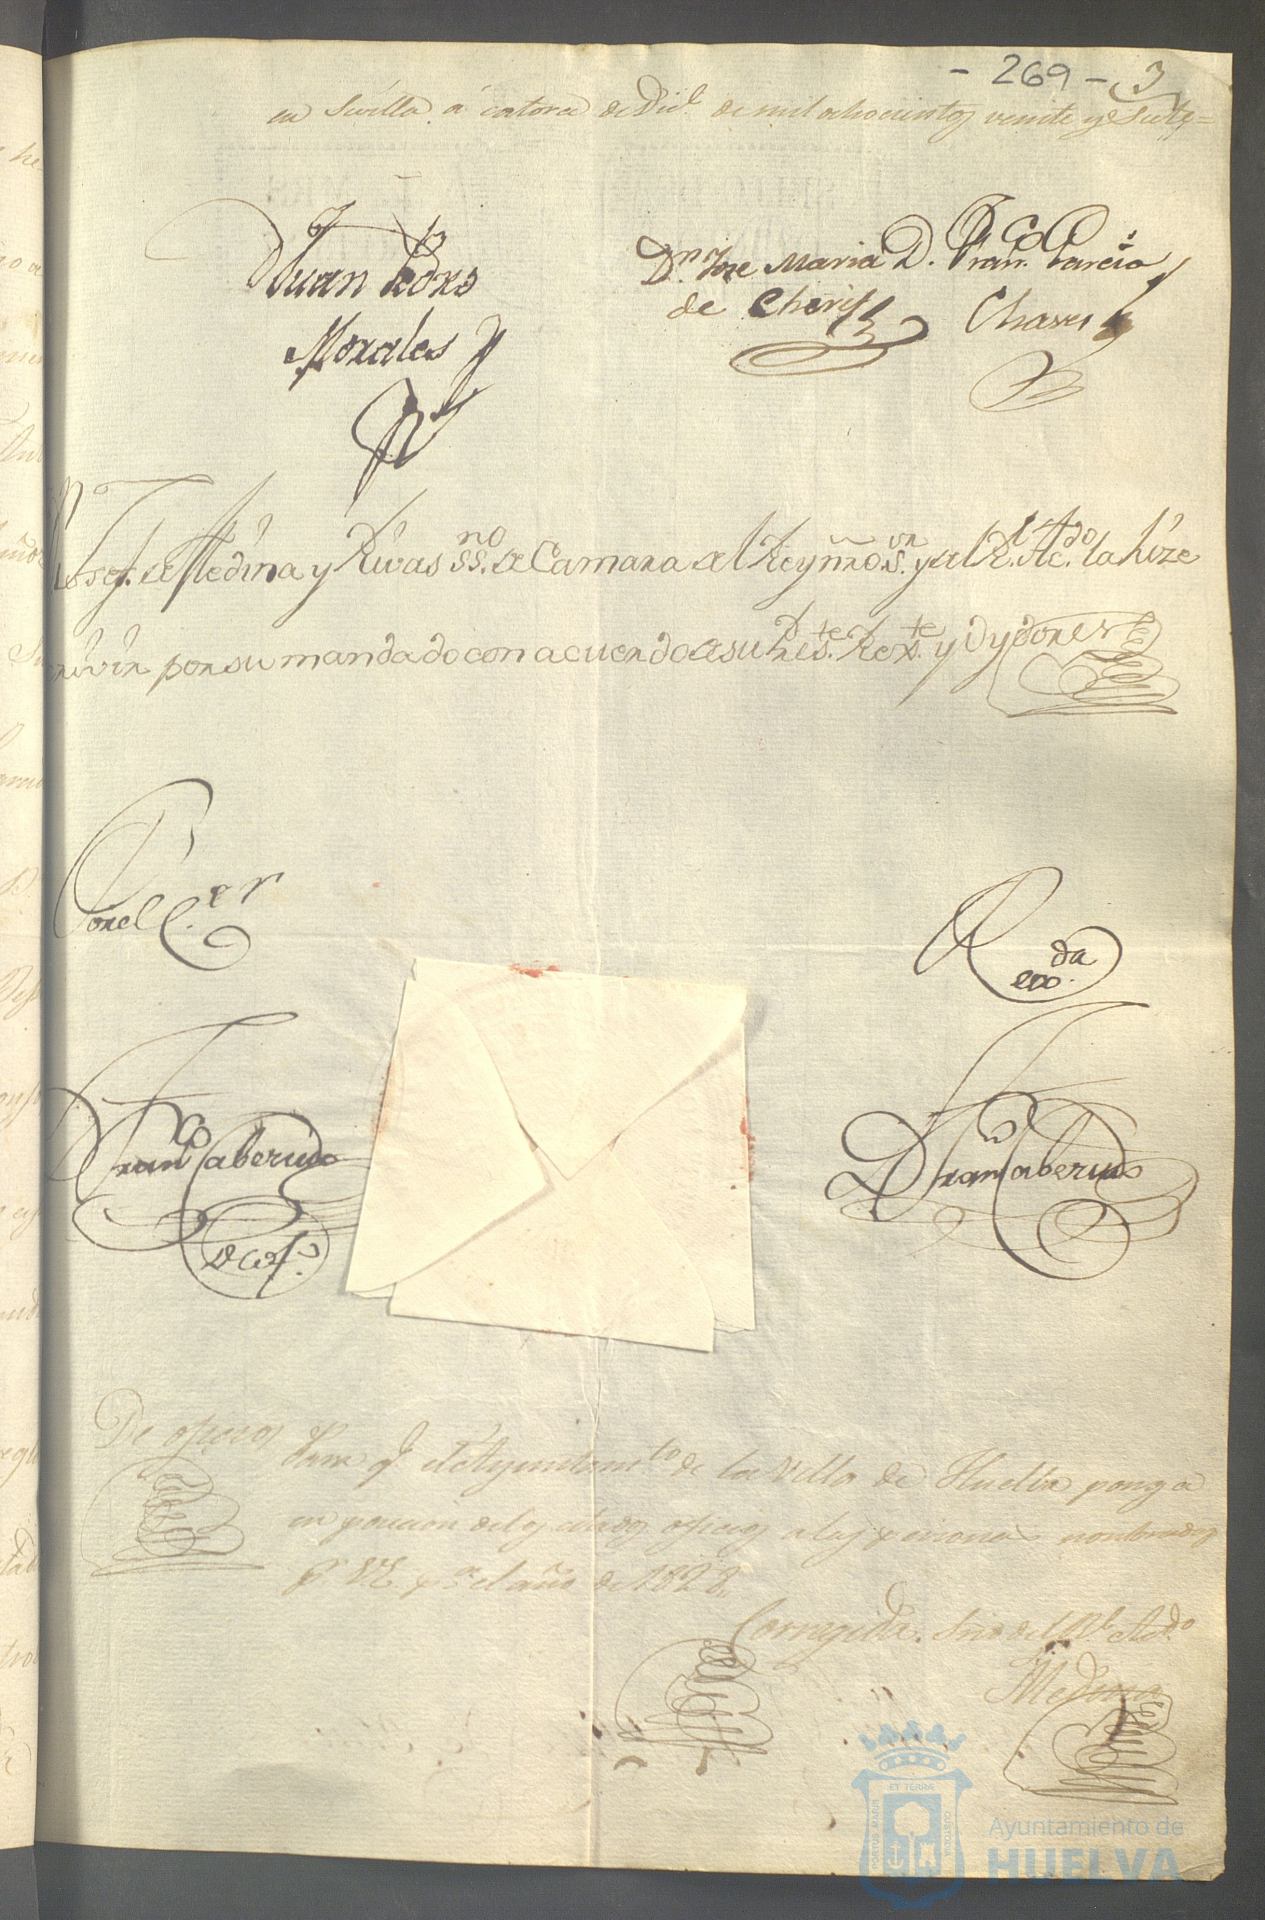 - 269 - 3
en Sevilla á catorce de Dic.e de mil ochocientos veinte y siete=
Juan Pedro
Morales y
Dn. Jose Maria
de Cheris
D. Franco. Garcia
Chaves
Yo Josef. de Medina y Rivas SSno. de Camara del Rey nro. Sor. y del Rl. Acdo. la hize
escrivir por su mandado con acuerdo de su Rte. y Oydores
Por el Cer
Franco Caberudo
Rda
D Fran Caberudo
De oficio
Para q.e el Ayuntamto de la Villa de Huelva ponga
en posecion de los oficios a las personas nombradas
pr. VE. pa. el año de 1828.
Corregida. Srio del Rl. Acdo
Medina
PORTUS MARIS
ET TERRÆ
CUSTODIA
Ayuntamiento de
HUELVA